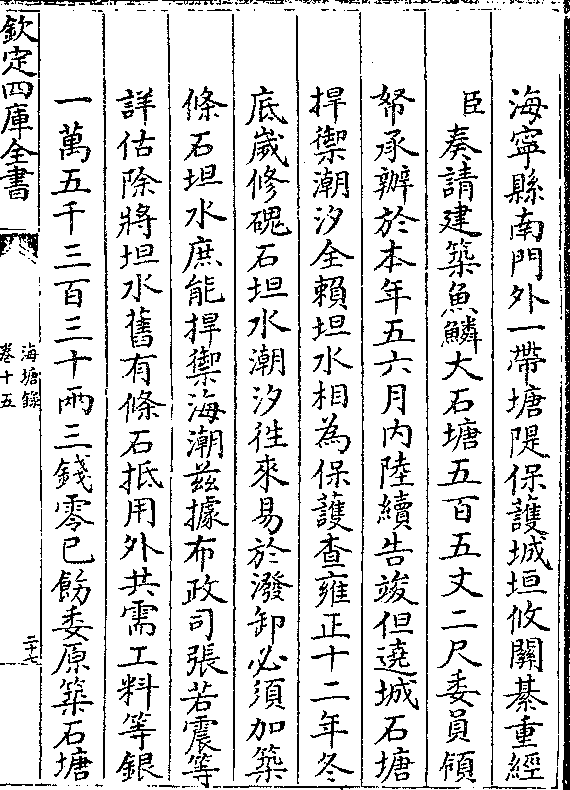 海寧縣南門外一帶塘隄保護城垣攸關綦重經
臣奏請建築魚鱗大石塘五百五丈二尺委員領
帑承辦於本年五六月內陸續告竣但遶城石塘
捍禦潮汐全賴坦水相為保護查雍正十二年冬
底歲修磈石坦水潮汐徃來易於潑卸必須加築
條石坦水庶能捍禦海潮兹據布政司張若震等
詳估除將坦水舊有條石抵用外共需工料等銀
一萬五千三百三十兩三錢零已飭委原築石塘
欽定四庫全書
海塘錄
卷十五
二十七